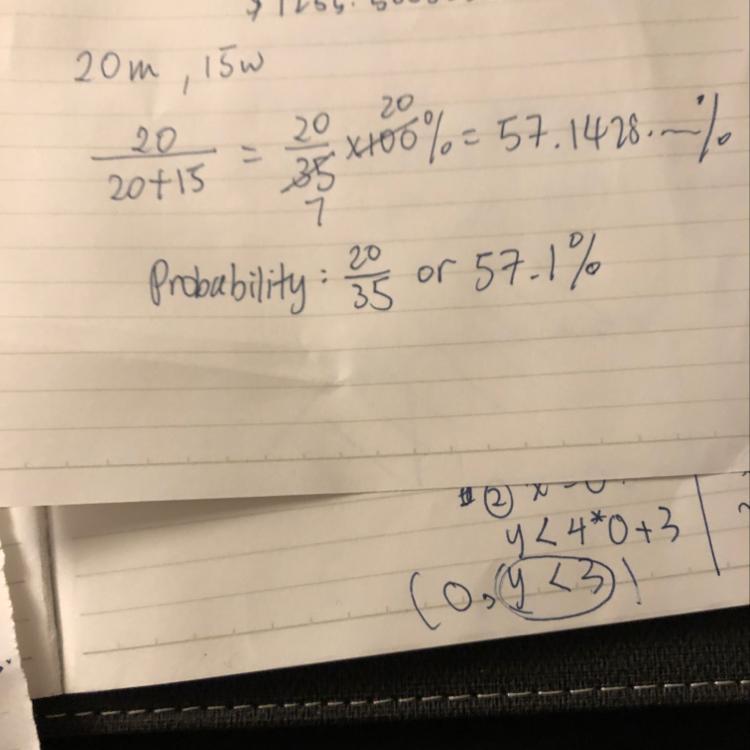 20m, 15w
20/20+15 = 20/35 x100% = 57.1428.—%
20
7
Probability: 20/35 or 57.1%
②
y<4*0+3
(0, y<3)